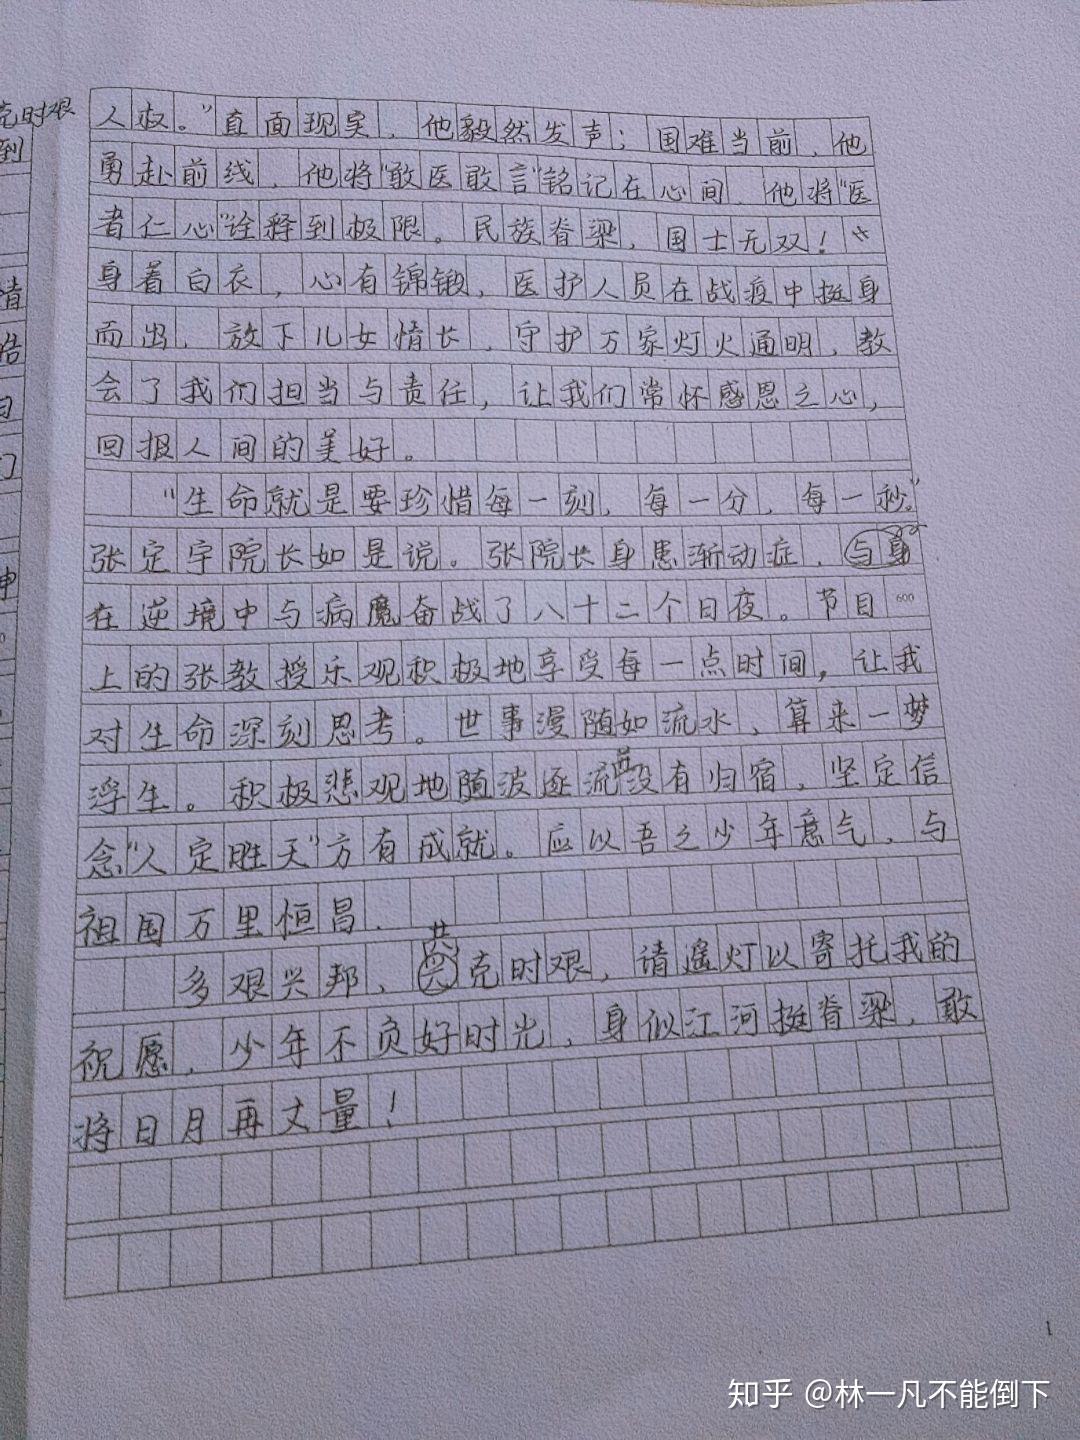 克时艰
到
人权。”直面现实，他毅然发声；国难当前，他
勇赴前线，他将“敢医敢言”铭记在心间，他将“医
者仁心”诠释到极限。民族脊梁，国士无双！
身着白衣，心有锦缎，医护人员在战疫中挺身
而出，放下儿女情长，守护万家灯火通明，教
会了我们担当与责任，让我们常怀感恩之心，
回报人间的美好。
“生命就是要珍惜每一刻，每一分，每一秒。”
张定宇院长如是说。张院长身患渐动症，
在逆境中与病魔奋战了八十二个日夜。节目
600
上的张教授乐观积极地享受每一点时间，让我
对生命深刻思考。世事漫随如流水，算来一梦
浮生。积极悲观地随波逐流并没有归宿，坚定信
念“人定胜天”方有成就。应以吾之少年意气，与
祖国万里恒昌．
多艰兴邦，共克时艰，请遥灯以寄托我的
祝愿，少年不负好时光，身似江河挺脊梁，敢
将日月再丈量！
1
知乎 @林一凡不能倒下